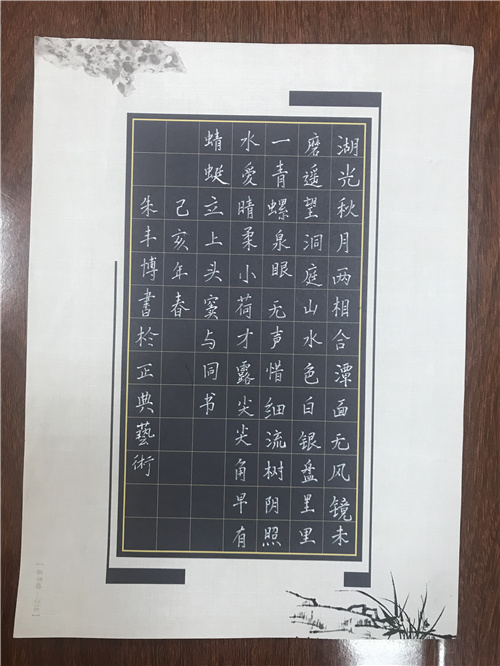 湖光秋月两相合潭面无风镜未
磨遥望洞庭山水色白银盘里里
一青螺泉眼无声惜细流树阴照
水爱晴柔小荷才露尖尖角早有
蜻蜓立上头窦与同书
己亥年春
朱丰博書於正典藝術